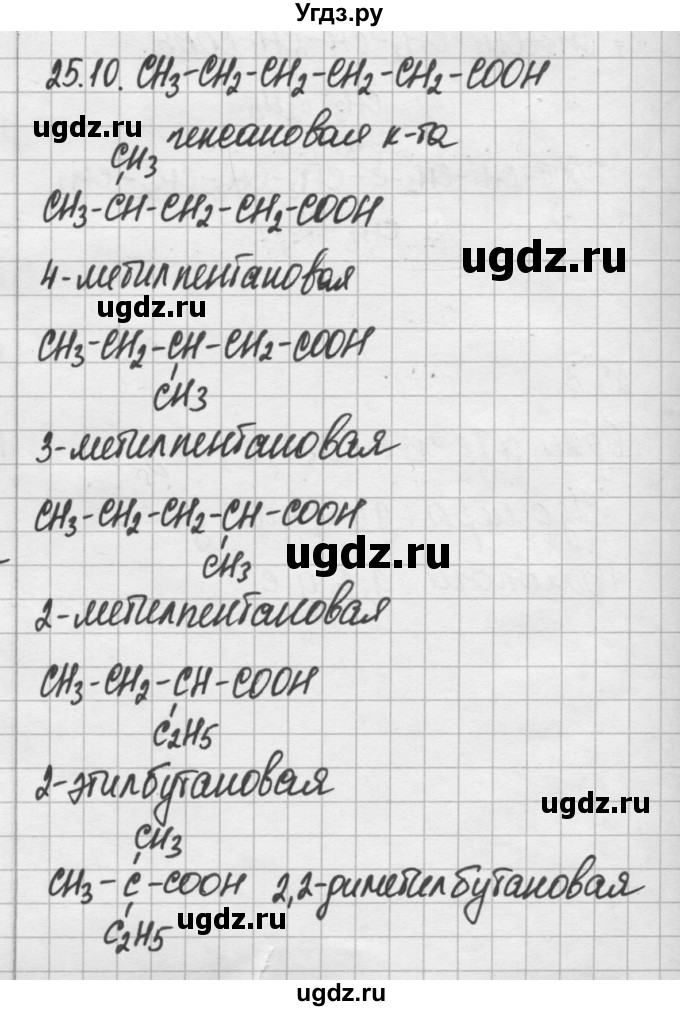 Угдз.ру
25.10. CH3-CH2-CH2-CH2-CH2-COOH
ugdz.ru
гексановая к-та
CH3
CH3-CH-CH2-CH2-COOH
ugdz.ru
4-метилпентановая
ugdz.ru
CH3-CH2-CH-CH2-COOH
CH3
3-метилпентановая
CH3-CH2-CH2-CH-COOH
ugdz.ru
CH3
2-метилпентановая
CH3-CH2-CH-COOH
C2H5
2-этилбутановая
ugdz.ru
CH3
CH3-C-COOH 2,2-диметилбутановая
ugdz.ru
C2H5
ugdz.ru